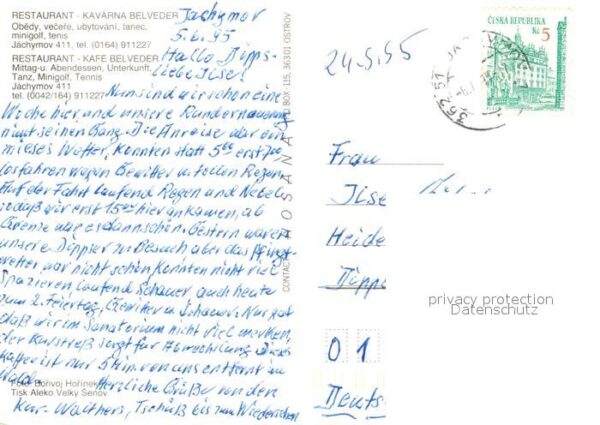 RESTAURANT - KAVÁRNA BELVEDER
Obědy, večeře, ubytování, tanec,
minigolf, tenis
Jáchymov 411, tel. (0164) 911227
RESTAURANT - KAFE BELVEDER
Mittag-u. Abendessen, Unterkunft,
Tanz, Minigolf, Tennis
Jáchymov 411
tel. (0042/164) 911227
Jachymov
5.6.95
Hallo Dipps-
liebe Ilse!
Nun sind wir schon eine
Woche hier und unsere
nimt seinen Gang. Die Anreise war ein
mieses Wetter, konnten statt 5⁰⁰ erst 7⁰⁰
losfahren wegen Gewitter u. tollen Regen.
Auf der Fahrt laufend Regen und Nebel
sodaß wir erst 15⁰⁰ hier ankamen, ab
Grenze war es dann schön. Gestern waren
unsere Dippser zu Besuch, aber das Pfingst-
wetter war nicht schön, konnten nicht viel
Spazieren laufend Schauer auch heute
zum 2. Feiertag, Gewitter u. Schauer. Nur gut
daß wir im Sanatorium nicht viel merken,
der Kurstreß sorgt für Abwechslung. Dieses
Kaffee ist nur 5 Min. von uns entfernt im
Wald.
Herzliche Grüße von den
Kur- Walthers, Tschüß bis zum Wiedersehen
Foto Bořivoj Hořínek
Tisk Aleko Velký Šenov
CONTACT HOSANA BOX 115, 363 01 OSTROV
24.5.95
ČESKÁ REPUBLIKA
Kč 5
362 51
Frau
Ilse
Heide
Dipps
privacy protection
Datenschutz
01
Deuts